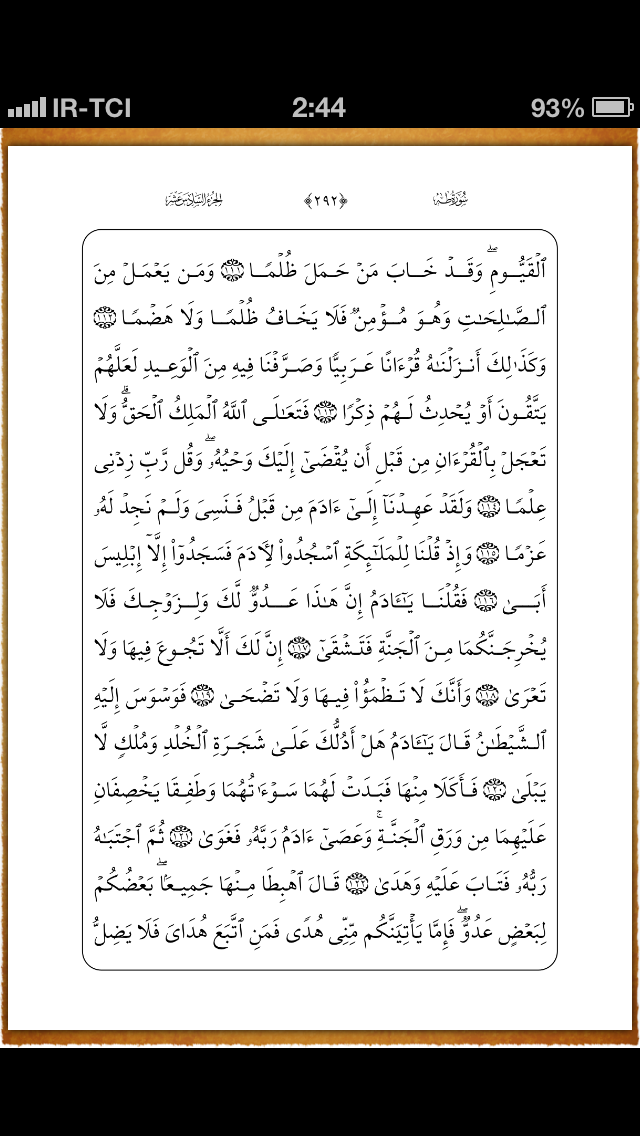 IR-TCI 2:44 93%
سُورَةُ طه ﴿٢٩٢﴾ الجُزءُ السَّادِسَ عَشَرَ
ٱلْقَيُّومِ ۖ وَقَدْ خَابَ مَنْ حَمَلَ ظُلْمًا ١١١ وَمَن يَعْمَلْ مِنَ
ٱلصَّـٰلِحَـٰتِ وَهُوَ مُؤْمِنٌ فَلَا يَخَافُ ظُلْمًا وَلَا هَضْمًا ١١٢
وَكَذَٰلِكَ أَنزَلْنَـٰهُ قُرْءَانًا عَرَبِيًّا وَصَرَّفْنَا فِيهِ مِنَ ٱلْوَعِيدِ لَعَلَّهُمْ
يَتَّقُونَ أَوْ يُحْدِثُ لَهُمْ ذِكْرًا ١١٣ فَتَعَـٰلَى ٱللَّهُ ٱلْمَلِكُ ٱلْحَقُّ ۗ وَلَا
تَعْجَلْ بِٱلْقُرْءَانِ مِن قَبْلِ أَن يُقْضَىٰٓ إِلَيْكَ وَحْيُهُۥ ۖ وَقُل رَّبِّ زِدْنِى
عِلْمًا ١١٤ وَلَقَدْ عَهِدْنَآ إِلَىٰٓ ءَادَمَ مِن قَبْلُ فَنَسِىَ وَلَمْ نَجِدْ لَهُۥ
عَزْمًا ١١٥ وَإِذْ قُلْنَا لِلْمَلَـٰٓئِكَةِ ٱسْجُدُوا۟ لِـَٔادَمَ فَسَجَدُوٓا۟ إِلَّآ إِبْلِيسَ
أَبَىٰ ١١٦ فَقُلْنَا يَـٰٓـَٔادَمُ إِنَّ هَـٰذَا عَدُوٌّ لَّكَ وَلِزَوْجِكَ فَلَا
يُخْرِجَنَّكُمَا مِنَ ٱلْجَنَّةِ فَتَشْقَىٰٓ ١١٧ إِنَّ لَكَ أَلَّا تَجُوعَ فِيهَا وَلَا
تَعْرَىٰ ١١٨ وَأَنَّكَ لَا تَظْمَؤُا۟ فِيهَا وَلَا تَضْحَىٰ ١١٩ فَوَسْوَسَ إِلَيْهِ
ٱلشَّيْطَـٰنُ قَالَ يَـٰٓـَٔادَمُ هَلْ أَدُلُّكَ عَلَىٰ شَجَرَةِ ٱلْخُلْدِ وَمُلْكٍ لَّا
يَبْلَىٰ ١٢٠ فَأَكَلَا مِنْهَا فَبَدَتْ لَهُمَا سَوْءَٰتُهُمَا وَطَفِقَا يَخْصِفَانِ
عَلَيْهِمَا مِن وَرَقِ ٱلْجَنَّةِ ۚ وَعَصَىٰٓ ءَادَمُ رَبَّهُۥ فَغَوَىٰ ١٢١ ثُمَّ ٱجْتَبَـٰهُ
رَبُّهُۥ فَتَابَ عَلَيْهِ وَهَدَىٰ ١٢٢ قَالَ ٱهْبِطَا مِنْهَا جَمِيعًۢا ۖ بَعْضُكُمْ
لِبَعْضٍ عَدُوٌّ ۖ فَإِمَّا يَأْتِيَنَّكُم مِّنِّى هُدًى فَمَنِ ٱتَّبَعَ هُدَاىَ فَلَا يَضِلُّ